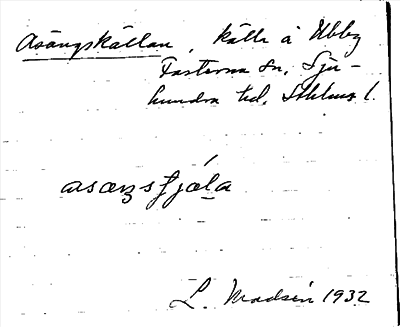 Asängskällan, källa å Ubby
Fasterna sn, Sju-
hundra hd. Sthlms l.
asæŋsʃǽla
L. Madsén 1932